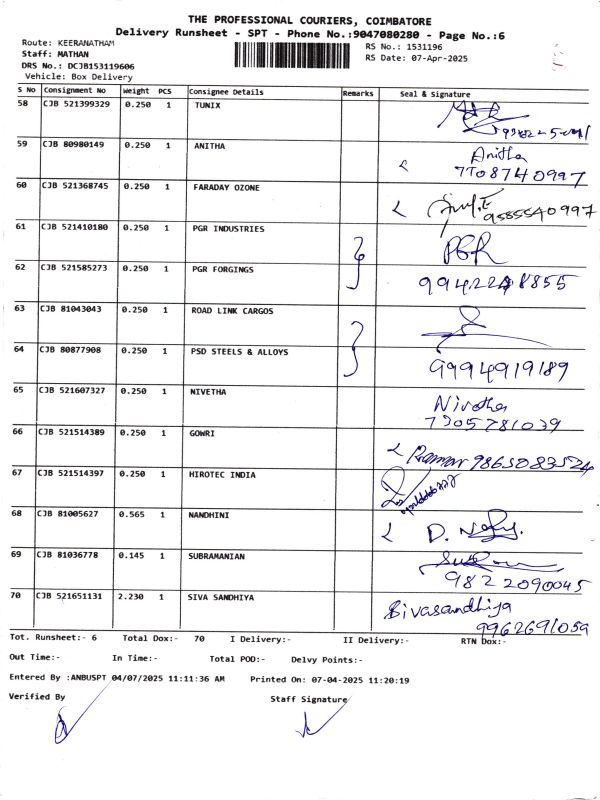 THE PROFESSIONAL COURIERS, COIMBATORE
Delivery Runsheet - SPT - Phone No.:9047080280 - Page No.:6
Route: KEERANATHAM
Staff: MATHAN
DRS No.: DCJB153119606
Vehicle: Box Delivery
RS No.: 1531196
RS Date: 07-Apr-2025
S No Consignment No Weight PCS Consignee Details Remarks Seal & Signature
58 CJB 521399329 0.250 1 TUNIX
59 CJB 80980149 0.250 1 ANITHA Anitha
7708740997
60 CJB 521368745 0.250 1 FARADAY OZONE
9585540997
61 CJB 521410180 0.250 1 PGR INDUSTRIES PGR
62 CJB 521585273 0.250 1 PGR FORGINGS
63 CJB 81043043 0.250 1 ROAD LINK CARGOS
64 CJB 80877908 0.250 1 PSD STEELS & ALLOYS 9994919189
65 CJB 521607327 0.250 1 NIVETHA Nivetha
7305781039
66 CJB 521514389 0.250 1 GOWRI Raman 9865083524
67 CJB 521514397 0.250 1 HIROTEC INDIA
68 CJB 81005627 0.565 1 NANDHINI
69 CJB 81036778 0.145 1 SUBRAMANIAN
9822090045
70 CJB 521651131 2.230 1 SIVA SANDHIYA Sivasandhiya
9962691059
Tot. Runsheet:- 6 Total Dox:- 70 I Delivery:- II Delivery:- RTN Dox:-
Out Time:- In Time:- Total POD:- Delvy Points:-
Entered By :ANBUSPT 04/07/2025 11:11:36 AM Printed On: 07-04-2025 11:20:19
Verified By Staff Signature